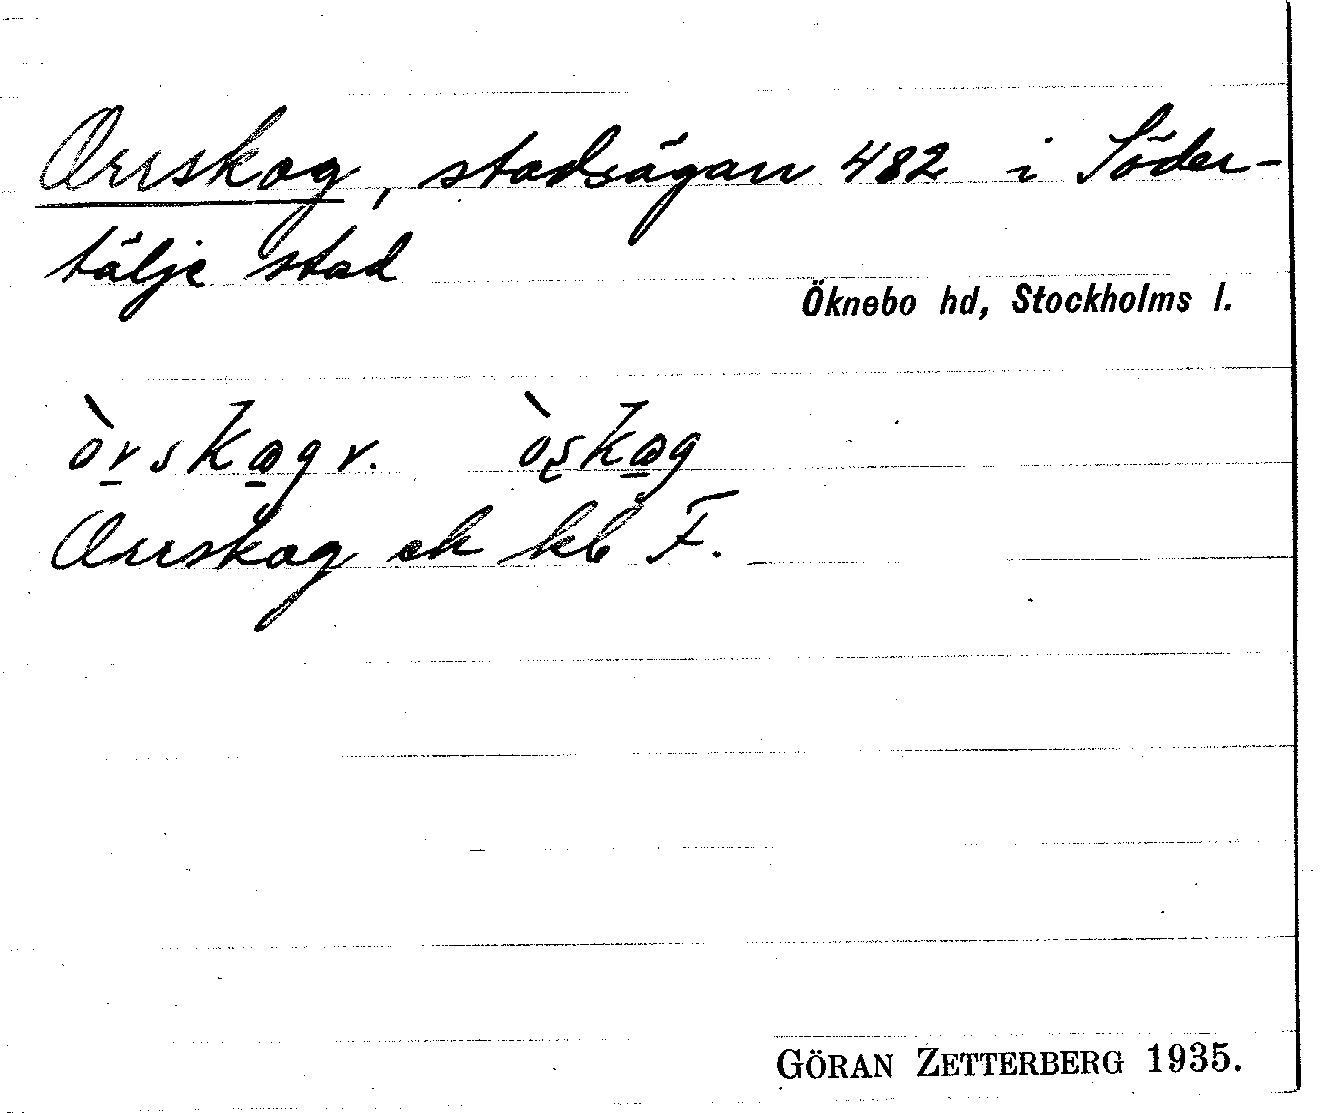 Orrskog, stadsägan 482 i Söder-
tälje stad
Öknebo hd, Stockholms l.
òrskⱺg r. òʂkⱺg
Orrskog ek kb F.
GÖRAN ZETTERBERG 1935.